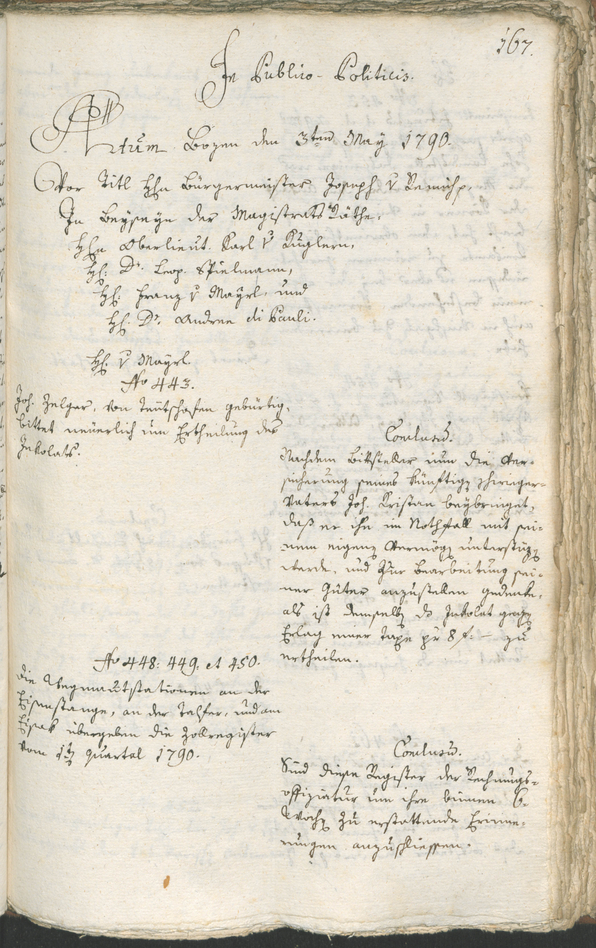 167.
In Publico-Politicis.
Actum Bozen den 3ten May 1790.
Vor Titl Hhn Bürgermeister Joseph v Remich,
In Beyseyn der Magistrats Räthe,
Hhn Oberlieut. Karl v Kuglern,
Hh: Dr. Leop. Spielmann,
Hh: Franz v Mayrl, und
Hh: Dr. Andree di Pauli.
Hh: v Mayrl.
No 443.
Joh. Zelger, von Teutschofen gebürtig,
bittet neuerlich um Ertheilung des
Inkolats.
Conclusum.
Nachdem Bittsteller nun die Ver-
sicherung seines künftign Schwieger-
vaters Joh. Kristan beybringet,
daß er ihn im Nothfall mit sei-
nem eigenen Vermögn unterstüzn
werde, und zur Bearbeitung sei-
ner Güter anzustellen gedenke,
als ist demselbn ds Inkolat gegn
Erlag einer Taxe pr 8 f. – zu
ertheilen.
No 448: 449. et 450.
Die Wegmautstationen an der
Eisenstange, an der Talfer, und am
Eisak übergeben die Zollregister
vom 1tn Quartal 1790.
Conclusum.
Sind diese Register der Rechnungs-
offiziatur um ihre binnen 6
Wochn zu erstattende Erinne-
rungen anzuschliessen.